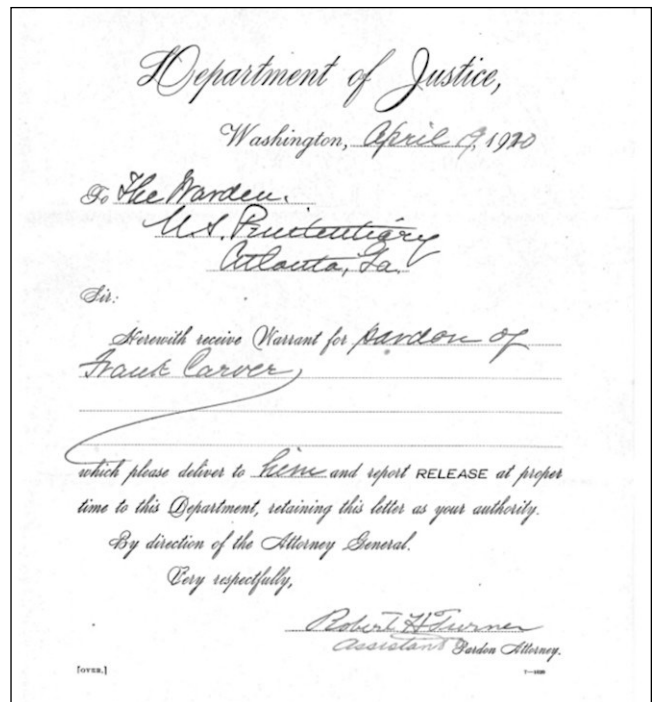 Department of Justice,
Washington, April 9, 1920
To The Warden.
U.S. Penitentiary
Atlanta, Ga.
Sir:
Herewith receive Warrant for pardon of
Frank Carver
which please deliver to him and report RELEASE at proper
time to this Department, retaining this letter as your authority.
By direction of the Attorney General.
Very respectfully,
Robert H Turner
Assistant Pardon Attorney.
[OVER.]